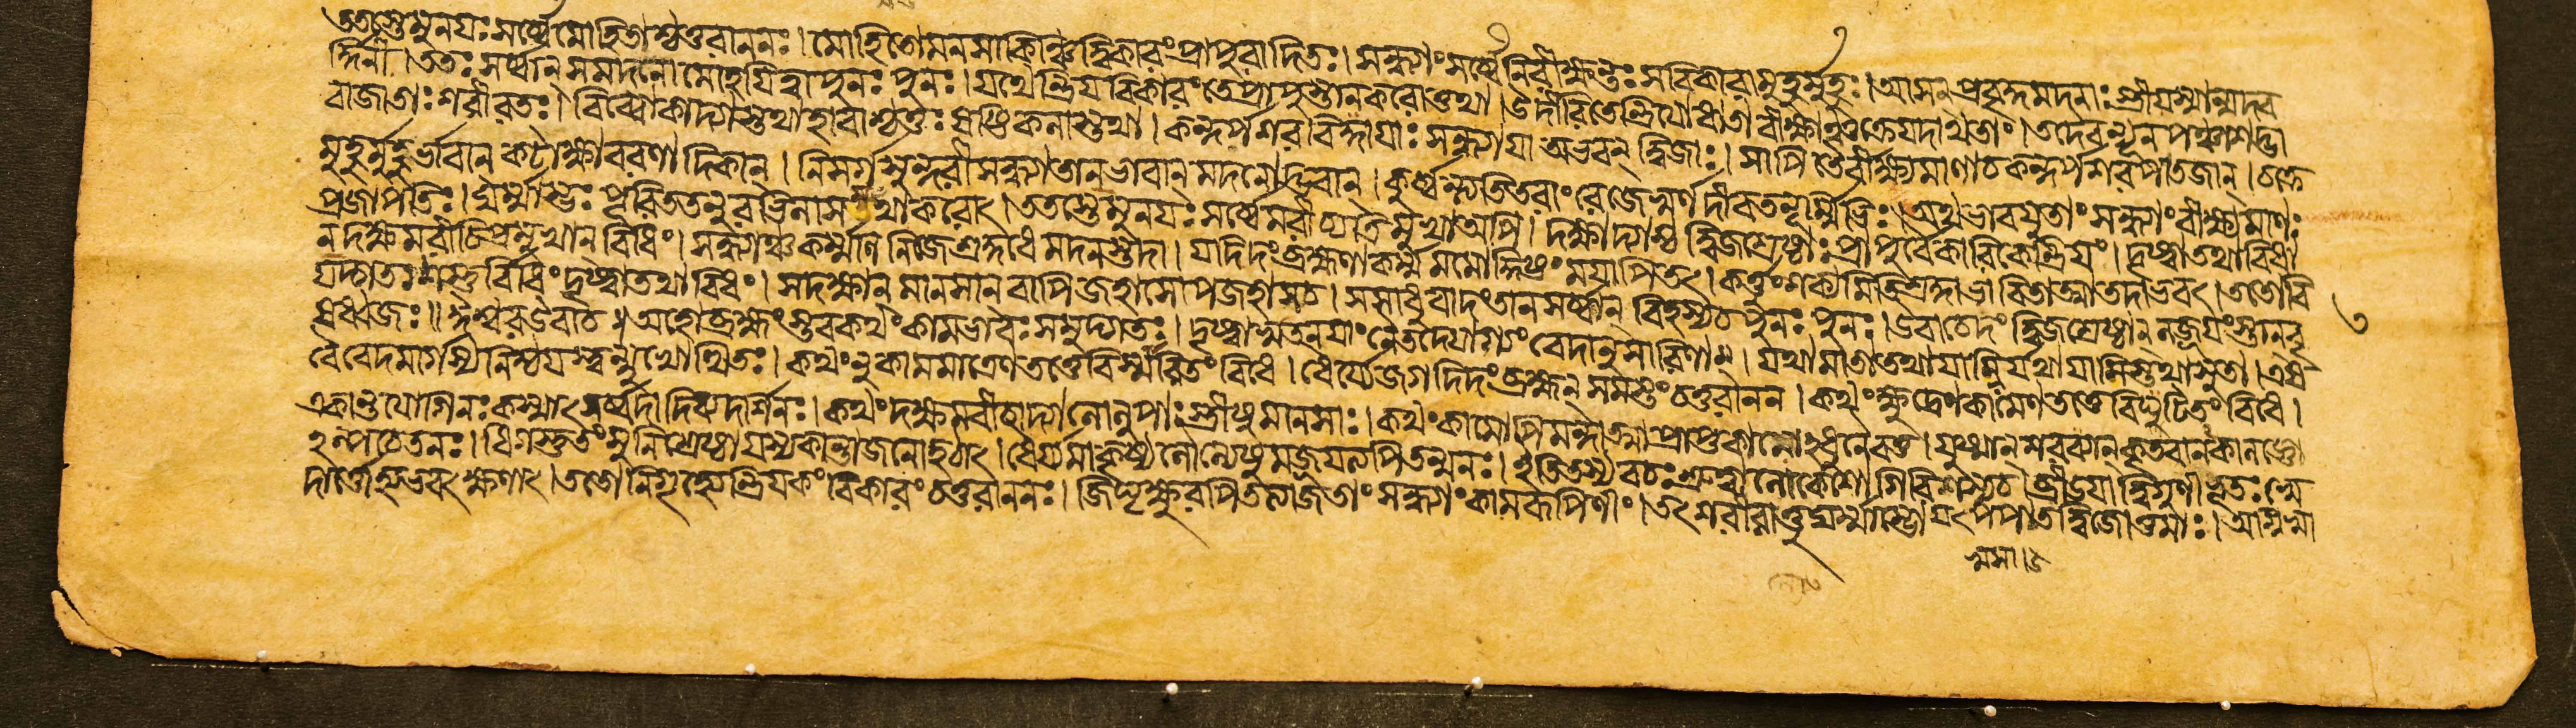 ততস্তে মুনযঃ সর্ব্বে মোহিতাশ্চতুরাননঃ। মোহিতো মনসা কিঞ্চিদ্বিকারং প্রাপুরাদিতঃ। সন্ধ্যাং সর্ব্বে নিরীক্ষন্তঃ সবিকারা মুহুর্মুহুঃ। আসন্ প্রবৃদ্ধমদনাঃ স্ত্রী যস্মান্মদব
র্দ্ধিনী। ততঃ সর্ব্বান্ স মদনো মোহযিত্বা পুনঃ পুনঃ। যথেন্দ্রিযবিকারং তে প্রাপুস্তানকরোত্তথা। উদীরিতেন্দ্রিযো ধাতা বীক্ষাঞ্চক্রে যদাথ তাং। তদৈব ন্যূনপঞ্চাশদ্ভা
বা জাতাঃ শরীরতঃ। বিব্বোকাদ্যাস্তথা হাবাশ্চতুঃষষ্টিকলাস্তথা। কন্দর্পশরবিদ্ধাযাঃ সন্ধ্যাযা অভবন্ দ্বিজাঃ। সাপি তৈর্বীক্ষ্যমাণাথ কন্দর্পশরপাতজান্। চক্রে
মুহুর্মুহুর্ভাবান্ কটাক্ষাবরণাদিকান্। নিসর্গসুন্দরী সন্ধ্যা তান্ ভাবান্ মদনোদ্ভবান্। কুর্ব্বন্ত্যতিতরাং রেজে স্বর্ণদীব তনূর্ম্মিভিঃ। অথ ভাবযুতাং সন্ধ্যাং বীক্ষ্যমাণঃ
প্রজাপতিঃ। ঘর্ম্মাম্ভঃপূরিততনুরভিলাসমথাকরোৎ। ততস্তে মুনযঃ সর্ব্বে মরীচ্যত্রিমুখা অপি। দক্ষাদ্যাশ্চ দ্বিজশ্রেষ্ঠাঃ প্রাপুর্বৈকারিকেন্দ্রিযং। দৃষ্ট্বা তথাবিধা
ন্ দক্ষমরীচিপ্রমুখান্ বিধিং। সন্ধ্যাঞ্চ কর্ম্মণি নিজে শ্রদ্দধে মদনস্তদা। যদিদং ব্রহ্মণা কর্ম্ম মমোদ্দিষ্টং মযাপি তৎ। কর্ত্তুং শক্যমিতি শ্রদ্ধাভাবিতাত্মা তদাভবৎ। ততো বি
যদ্গতঃ শম্ভুর্বিধিং দৃষ্ট্বা তথাবিধং। সদক্ষান্ মানসান্ বাপি জহাসোপজহাস চ। সসাধুবাদং তান্ সর্ব্বান্ বিহস্য চ পুনঃ পুনঃ। উবাচেদং দ্বিজশ্রেষ্ঠান্ লজ্জযংস্তান্ বৃ
ষধ্বজঃ॥ ঈশ্বর উবাচ॥ অহো ব্রহ্মংস্তব কথং কামভাবঃ সমুদ্গতঃ। দৃষ্ট্বা স্বতনযাং নৈতদ্যোগ্যং বেদানুসারিণাম্। যথা মাতা তথা যামির্যথা যামিস্তথা সুতা। এষ
বৈ বেদমার্গস্য নিশ্চযস্ত্বন্মুখোত্থিতঃ। কথং নু কামমাত্রেণ তত্তে বিস্মারিতং বিধে। ধৈর্য্যে জগদিদং ব্রহ্মন্ সমস্তং চতুরানন। কথং ক্ষুদ্রেণ কামেণ তত্তে বিঘটিতং বিধে।
একান্তযোগিনঃ কস্মাৎ সর্ব্বদা দিব্যদর্শিনঃ। কথং দক্ষমরীচ্যাদ্যা লোলুপাঃ স্ত্রীষু মানসাঃ। কথং কামোপি মন্দাত্মা প্রাপ্তকালোধুনৈব তু। যুষ্মান্ শরব্যান্ কৃতবানকালজ্ঞো
ল্পচেতনঃ। ধিগস্তু তং মুনিশ্রেষ্ঠা যস্য কান্তাজনো হঠাৎ। ধৈর্য্যমাকৃষ্য লৌল্যেষু মজ্জযত্যপি তন্মনঃ। ইতি তস্য বচঃ শ্রুত্বা লোকেশো গিরিশস্য চ। ব্রীডযা দ্বিগুণীভূতঃ স্বে
দার্দ্রোভবৎ ক্ষণাৎ। ততো নিগৃহ্যেন্দ্রিযকং বিকারং চতুরাননঃ। জিঘৃক্ষুরপি তত্যাজ তাং সন্ধ্যাং কামরূপিণীং। তৎশরীরাত্তু ঘর্ম্মাম্ভো যৎ পপাত দ্বিজোত্তমাঃ। অগ্নিষ্বা